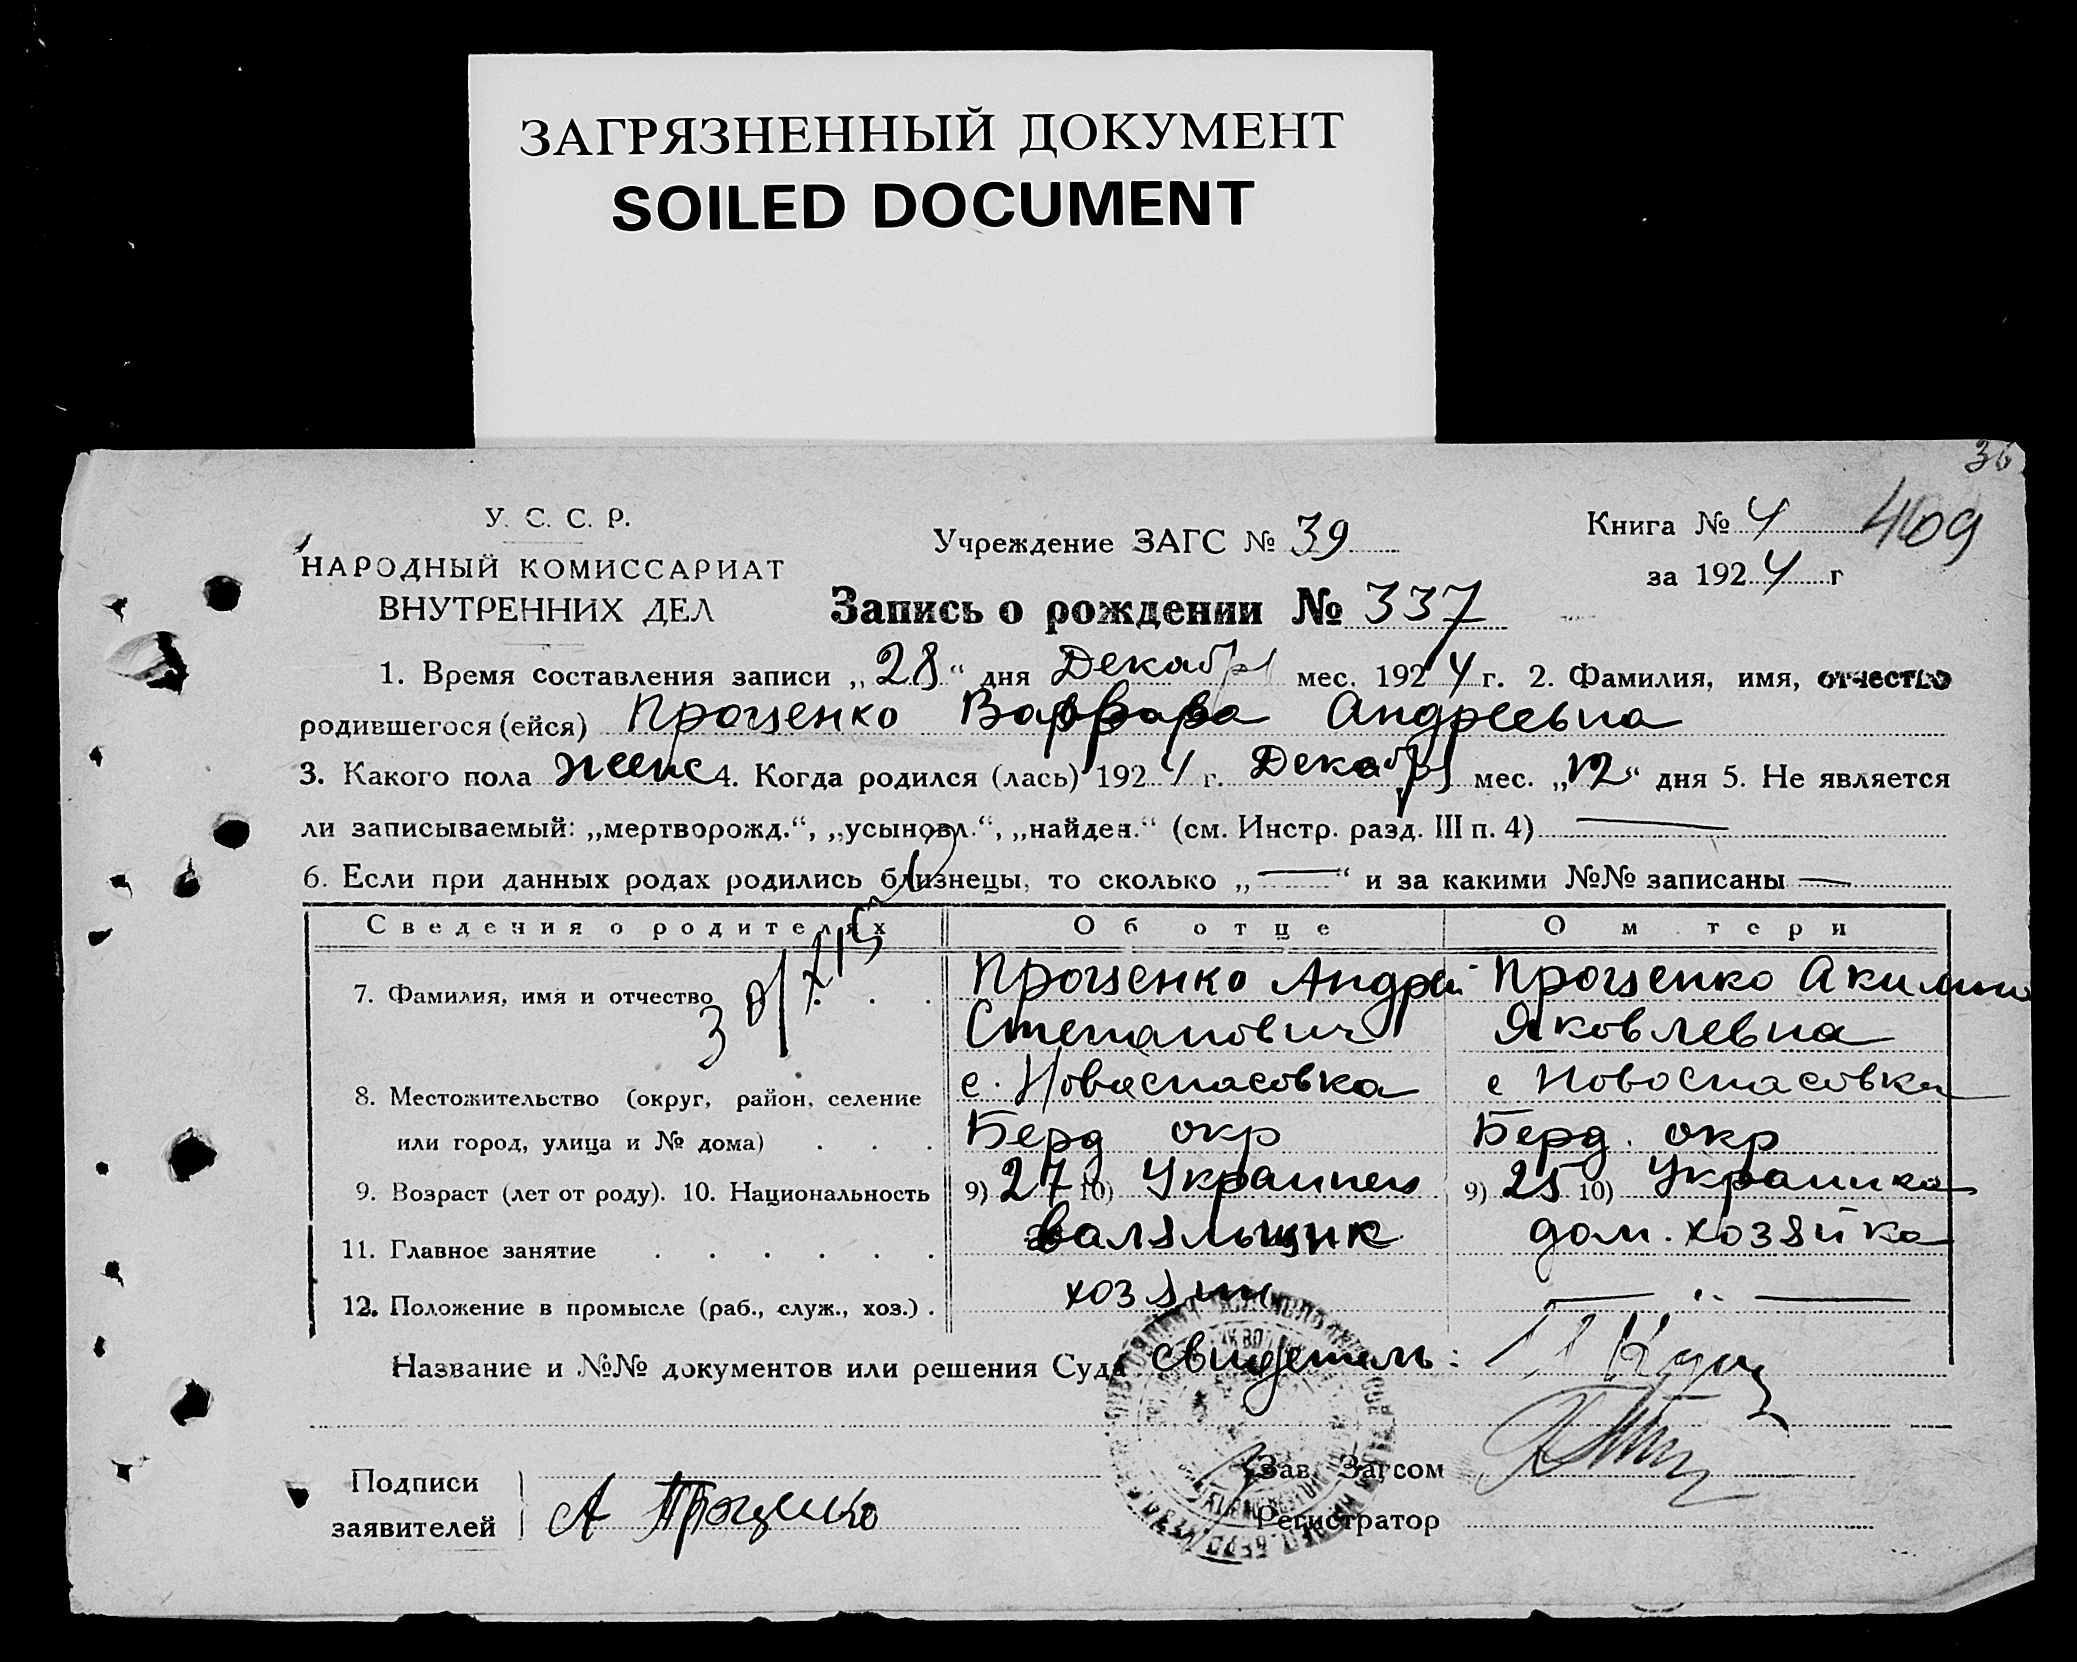 ЗАГРЯЗНЕННЫЙ ДОКУМЕНТ
SOILED DOCUMENT
36
У. С. С. Р.
НАРОДНЫЙ КОМИССАРИАТ
ВНУТРЕННИХ ДЕЛ
Учреждение ЗАГС № 39
Книга № 4 409
за 1924 г
Запись о рождении № 337
1. Время составления записи „28“ дня Декабр мес. 1924 г. 2. Фамилия, имя, отчество
родившегося (ейся) Проценко Варвара Андреевна
3. Какого пола женс 4. Когда родился (лась) 1924 г. Декабр мес. „12“ дня 5. Не является
ли записываемый: „мертворожд.“, „усыновл.“, „найден.“ (см. Инстр. разд. III п. 4) —
6. Если при данных родах родились близнецы, то сколько „—“ и за какими №№ записаны —
Сведения о родителях Об отце О м тери
7. Фамилия, имя и отчество Проценко Андрей Проценко Акилина
Степанович Яковлевна
8. Местожительство (округ, район, селение с. Новоспасовка с Новоспасовка
или город, улица и № дома) Берд окр Берд. окр
9. Возраст (лет от роду). 10. Национальность 9) 27 10) Украинец 9) 25 10) Украинка
11. Главное занятие валяльщик дом. хозяйка
12. Положение в промысле (раб., служ., хоз.) хозяин — „ —
Название и №№ документов или решения Суда свидетель:
Подписи
заявителей А Проценко
Зав. Загсом
Регистратор